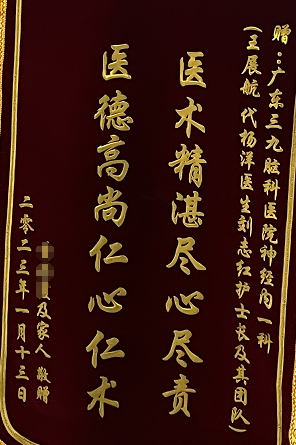 赠：广东三九脑科医院神经内一科
（王展航 代杨洋医生刘志红护士长及其团队）
医术精湛尽心尽责
医德高尚仁心仁术
及家人 敬赠
二零二三年一月十三日